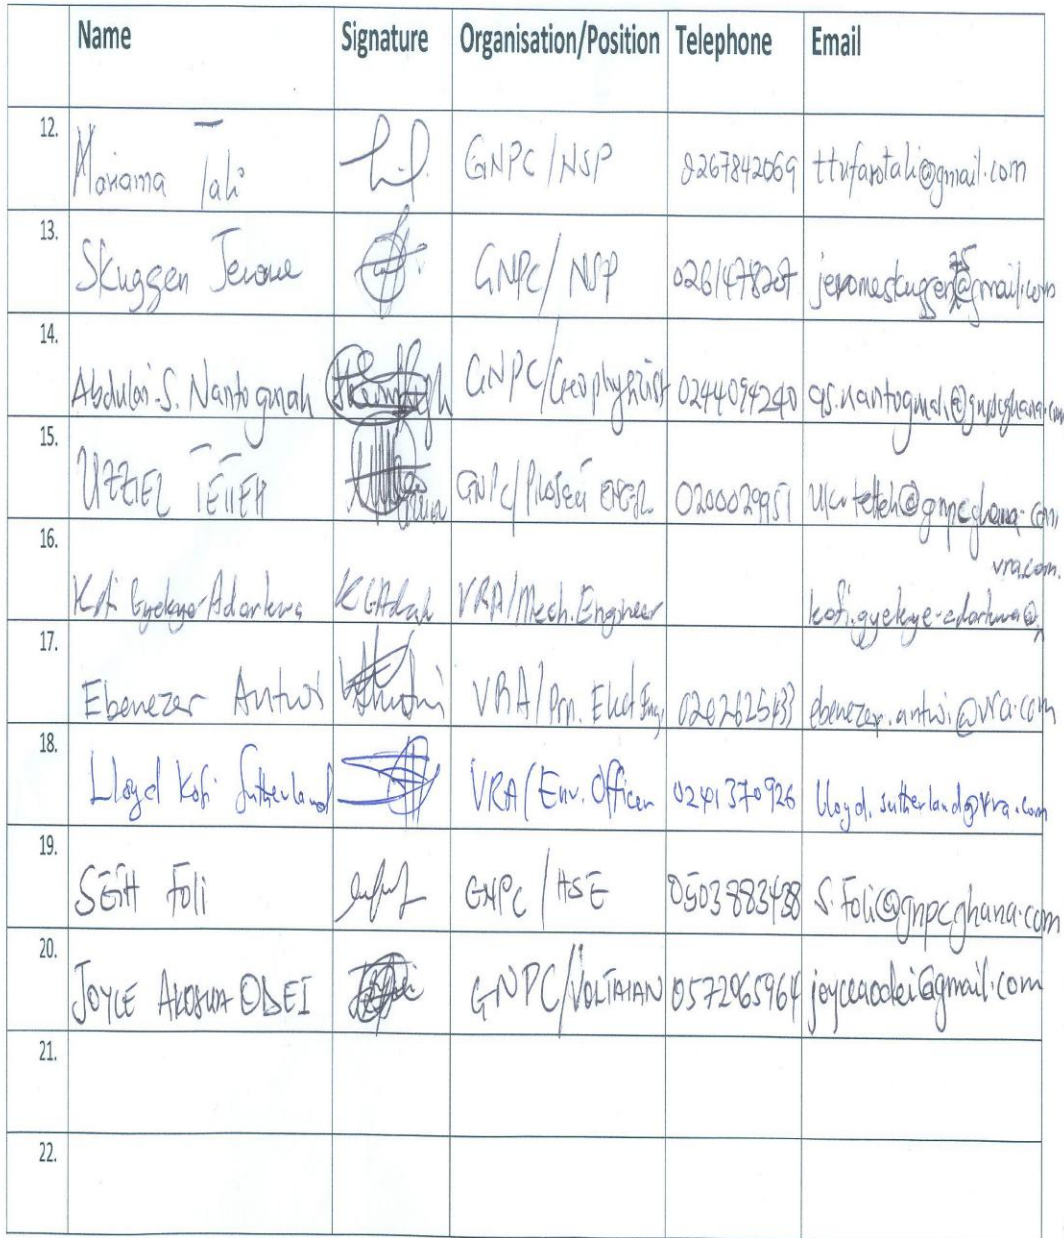 Name Signature Organisation/Position Telephone Email
12. Mariama Tali GNPC/NSP 0267842069 ttufarotali@gmail.com
13. Skuggen Jerome GNPC/NSP 0261478207 jeromeskuggen75@gmail.com
14. Abdulai-S. Nantogmah GNPC/Geophysicist 0244094240 as.nantogmah@gnpcghana.com
15. UZZIEL TETTEH GNPC/ 0200029951 tetteh@gnpcghana.com
16. Kofi Gyekye-Adarkwa KGAdark VRA/Mech. Engineer kofi.gyekye-adarkwa@vra.com.
17. Ebenezer Antwi VRA/Prn. Elect Eng. ebenezer.antwi@vra.com
18. Lloyd Kofi Sutherland VRA/Env. Officer 0241370926 lloyd.sutherland@vra.com
19. SETH Foli GNPC/HSE 0503883438 S.Foli@gnpcghana.com
20. JOYCE AKOSUA ODEI GNPC/VOLTAIAN 0572965964 joyceaodei@gmail.com
21.
22.